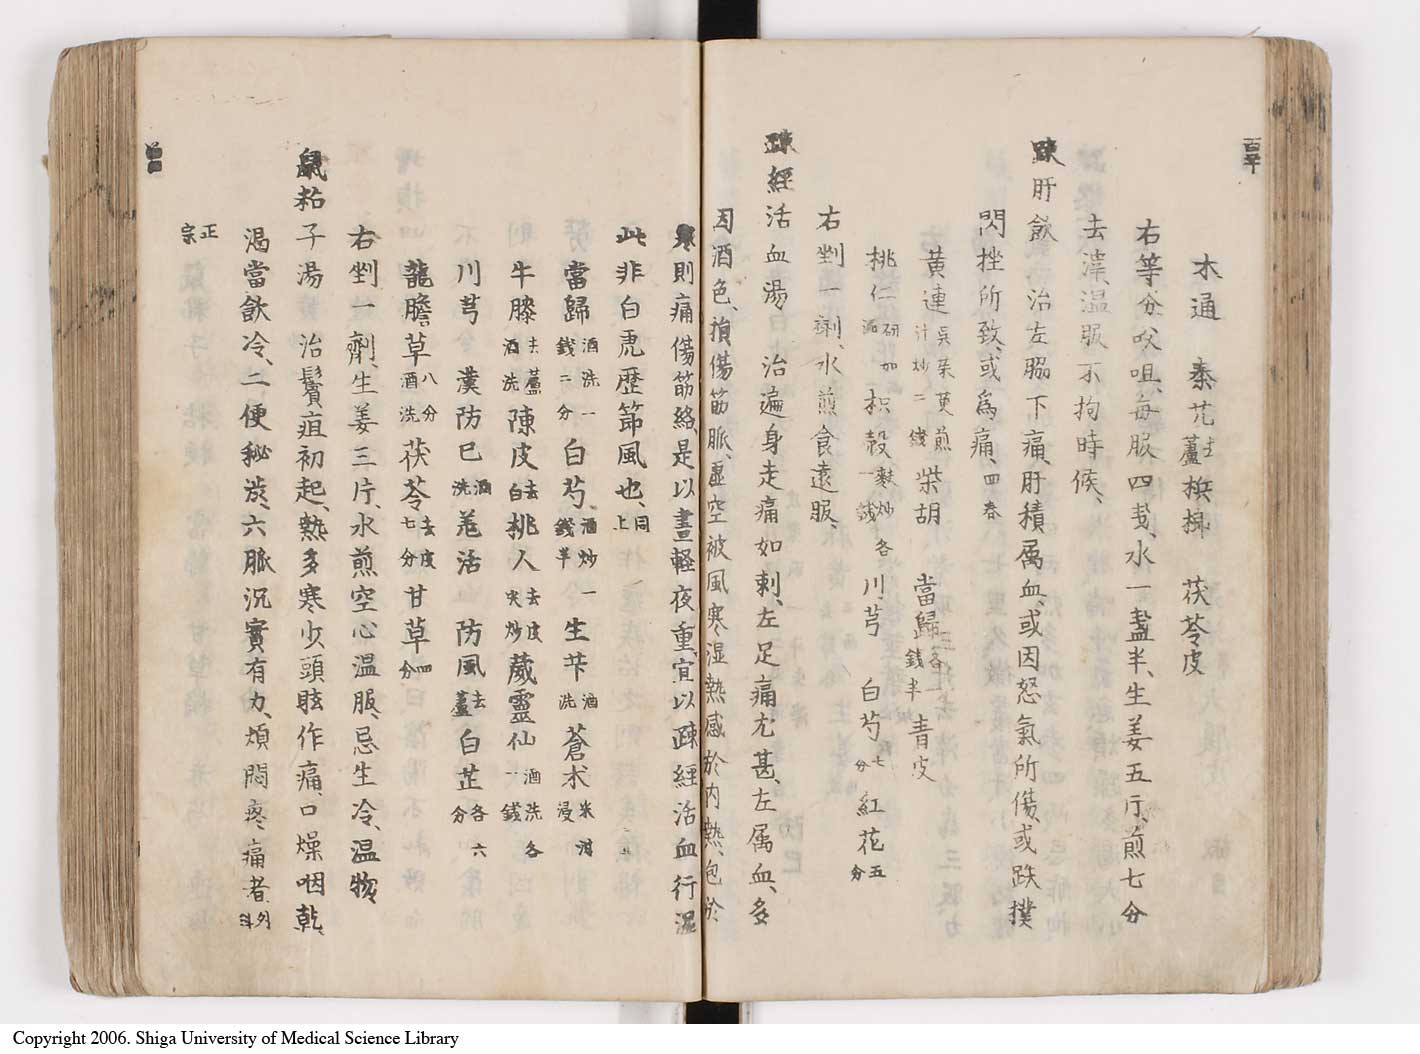 木通 秦艽去蘆 檳榔 茯苓皮
右等分㕮咀、每服四戔、水一盞半、生姜五片、煎七分
去滓、温服不拘時候、
疎肝飲 治左脇下痛、肝積属血、或因怒氣所傷、或跌撲
閃挫所致、或爲痛、四春
黄連吳茱萸煎汁炒二錢 柴胡 當歸各一錢半 青皮
桃仁研如泥 枳殼麩炒各一錢 川芎 白芍七分 紅花五分
右剉一剤、水煎食遠服、
疎經活血湯 治遍身走痛如刺、左足痛尤甚、左属血、多
因酒色、損傷筋脈、虚空被風寒湿熱感於内熱、包於
寒則痛傷筋絡、是以晝軽夜重、宜以疎經活血行湿
此非白虎歴節風也、同上
當歸酒洗一錢二分 白芍酒炒一錢半 生芐酒洗 蒼朮米泔浸
牛膝去蘆酒洗 陳皮去白 桃人去皮尖炒 葳靈仙酒洗各一錢
川芎 漢防已酒洗 羗活 防風去蘆 白芷各六分
龍膽草八分酒洗 茯苓去皮七分 甘草四分
右剉一劑、生姜三片、水煎空心温服、忌生冷、温物
鼠粘子湯 治鬢疽初起、熱多寒少頭眩作痛、口燥咽乾、
渴當飲冷、二便秘澁、六脈沉實有力、煩悶疼痛者、外科
正宗
百四十
Copyright 2006. Shiga University of Medical Science Library